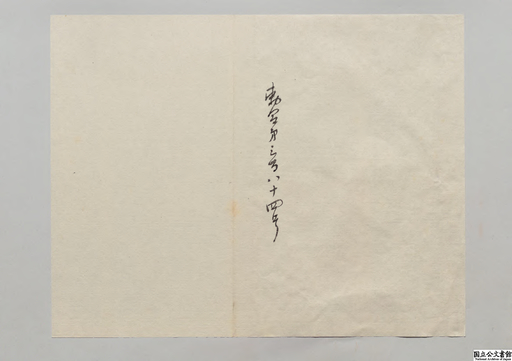 勅令第三百八十四号
国立公文書館
National Archives of Japan